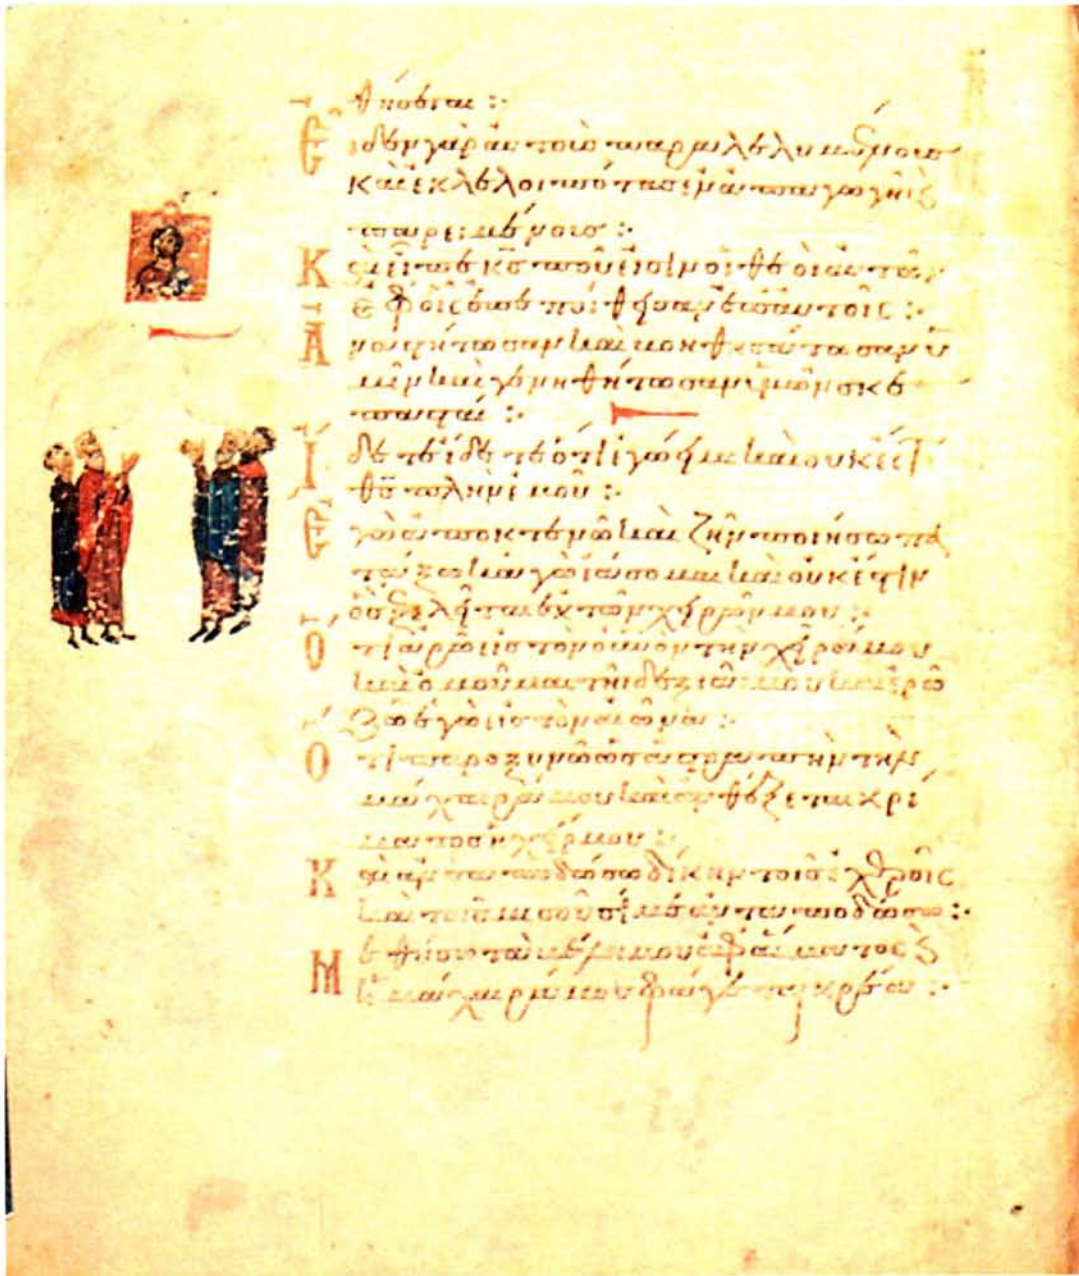 θήσεται :·
Εἶδεν γὰρ αὐτοὺς παραλελυμένους
καὶ ἐκλελοιπότας ἐν ἀπαγωγῆ ϗ
παρειμένους :·
Καὶ εἶπε κς ποῦ εἰσὶν οἱ θεοὶ αὐτῶν
ἐφ οἷς ἐπεποίθησαν ἐπ αὐτοῖς :·
Ἀναστήτωσαν καὶ βοηθησάτωσαν ὑ
μῖν καὶ γενηθήτωσαν ὑμῶν σκε
πασταί :·
Ἴδετε ἴδετε ὅτι ἐγώ εἰμι καὶ οὐκ ἔστ
θς πλὴν ἐμοῦ :·
Ἐγὼ ἀποκτενῶ καὶ ζῆν ποιήσω πα
τάξω κἀγὼ ἰάσομαι καὶ οὐκ ἔστιν
ὃς ἐξελεῖται ἐκ τῶν χειρῶν μου :·
Ὅτι ἀρῶ εἰς τὸν οὐνὸν τὴν χεῖρά μου
καὶ ὀμοῦμαι τῆ δεξιᾶ μου καὶ ἐρῶ
Ζῶ ἐγὼ εἰς τὸν αἰῶνα :·
Ὅτι παροξυνῶ ὡς ἀστραπὴν τὴν
μάχαιράν μου καὶ ἀνθέξεται κρί
ματος ἡ χείρ μου :·
Καὶ ἀνταποδώσω δίκην τοῖς ἐχθροῖς
καὶ τοῖς μισοῦσί με ἀνταποδώσω :·
Μεθύσω τὰ βέλη μου ἀφ αἵματος ϗ
ἡ μάχαιρά μου φάγεται κρέα :·